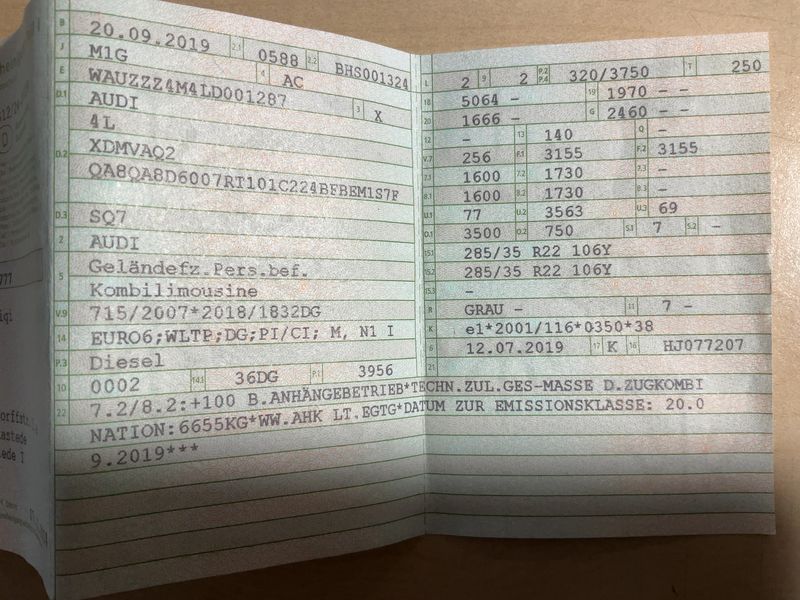 B 20.09.2019 2.1 0588 2.2 BHS001324
J M1G 4 AC
E WAUZZZ4M4LD001287 3 X
D.1 AUDI
4L
D.2 XDMVAQ2
QA8QA8D6007RT101C224BFBEM1S7F
D.3 SQ7
2 AUDI
5 Geländefz.Pers.bef.
Kombilimousine
V.9 715/2007*2018/1832DG
14 EURO6;WLTP;DG;PI/CI; M, N1 I
P.3 Diesel
10 0002 14.1 36DG P.1 3956
22 7.2/8.2:+100 B.ANHÄNGEBETRIEB*TECHN.ZUL.GES-MASSE D.ZUGKOMBI
NATION:6655KG*WW.AHK LT.EGTG*DATUM ZUR EMISSIONSKLASSE: 20.0
9.2019***
L 2 9 2 P.2 P.4 320/3750 T 250
18 5064 - 19 1970 - -
20 1666 - G 2460 - -
12 - 13 140 Q -
V.7 256 F.1 3155 F.2 3155
7.1 1600 7.2 1730 7.3 -
8.1 1600 8.2 1730 8.3 -
U.1 77 U.2 3563 U.3 69
O.1 3500 O.2 750 S.1 7 S.2 -
15.1 285/35 R22 106Y
15.2 285/35 R22 106Y
15.3 -
R GRAU - 11 7 -
K e1*2001/116*0350*38
6 12.07.2019 17 K 16 HJ077207
21